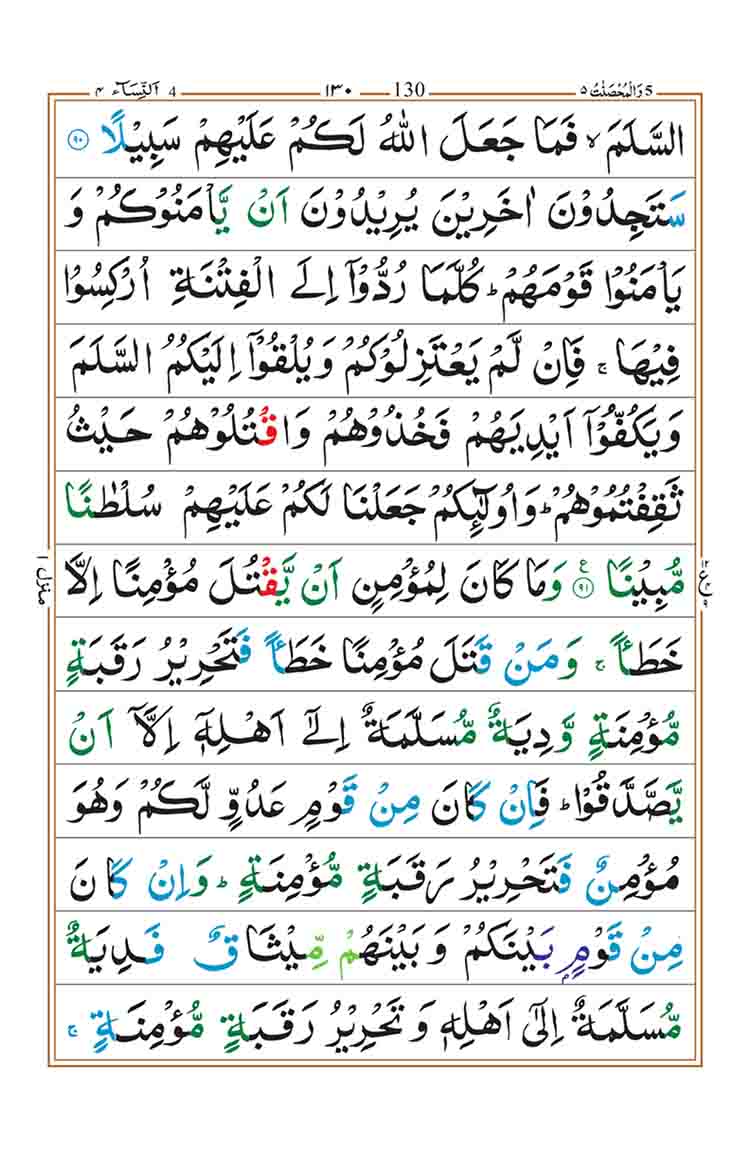 5 وَالْمُحْصَنٰتُ ٥ 130 ١٣٠ 4 اَلنِّسَآء ٤
السَّلَمَ ۙ فَمَا جَعَلَ اللّٰهُ لَكُمْ عَلَيْهِمْ سَبِيْلًا ﴿٩٠﴾
سَتَجِدُوْنَ اٰخَرِيْنَ يُرِيْدُوْنَ اَنْ يَّاْمَنُوْكُمْ وَ
يَاْمَنُوْا قَوْمَهُمْ ؕ كُلَّمَا رُدُّوْۤا اِلَى الْفِتْنَةِ اُرْكِسُوْا
فِيْهَا ۚ فَاِنْ لَّمْ يَعْتَزِلُوْكُمْ وَيُلْقُوْۤا اِلَيْكُمُ السَّلَمَ
وَيَكُفُّوْۤا اَيْدِيَهُمْ فَخُذُوْهُمْ وَاقْتُلُوْهُمْ حَيْثُ
ثَقِفْتُمُوْهُمْ ؕ وَاُولٰٓئِكُمْ جَعَلْنَا لَكُمْ عَلَيْهِمْ سُلْطٰنًا
مُّبِيْنًا ﴿٩١﴾ ع وَمَا كَانَ لِمُؤْمِنٍ اَنْ يَّقْتُلَ مُؤْمِنًا اِلَّا
خَطَـًٔا ۚ وَمَنْ قَتَلَ مُؤْمِنًا خَطَـًٔا فَتَحْرِيْرُ رَقَبَةٍ
مُّؤْمِنَةٍ وَّدِيَةٌ مُّسَلَّمَةٌ اِلٰٓى اَهْلِهٖۤ اِلَّاۤ اَنْ
يَّصَّدَّقُوْا ؕ فَاِنْ كَانَ مِنْ قَوْمٍ عَدُوٍّ لَّكُمْ وَهُوَ
مُؤْمِنٌ فَتَحْرِيْرُ رَقَبَةٍ مُّؤْمِنَةٍ ؕ وَاِنْ كَانَ
مِنْ قَوْمٍۢ بَيْنَكُمْ وَبَيْنَهُمْ مِّيْثَاقٌ فَدِيَةٌ
مُّسَلَّمَةٌ اِلٰٓى اَهْلِهٖ وَتَحْرِيْرُ رَقَبَةٍ مُّؤْمِنَةٍ ۚ
منزل ١